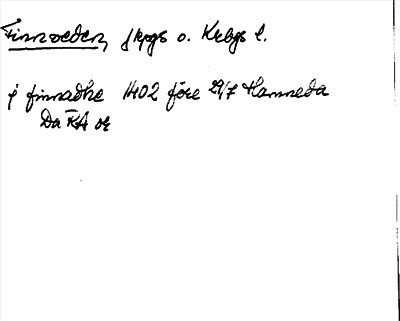 Finnveden, Jkpgs o. Krbgs l.
j finnadhe 1402 före 29/7 Hamneda
Da RA or